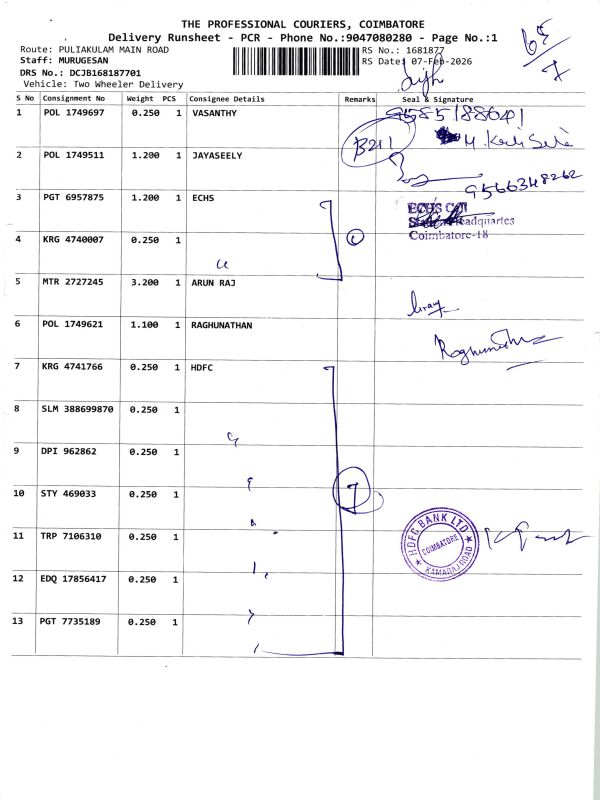 THE PROFESSIONAL COURIERS, COIMBATORE
Delivery Runsheet - PCR - Phone No.:9047080280 - Page No.:1
Route: PULIAKULAM MAIN ROAD
RS No.: 1681877
Staff: MURUGESAN
RS Date: 07-Feb-2026
DRS No.: DCJB168187701
Vehicle: Two Wheeler Delivery
65/7
S No Consignment No Weight PCS Consignee Details Remarks Seal & Signature
1 POL 1749697 0.250 1 VASANTHY 9585188641
B211
2 POL 1749511 1.200 1 JAYASEELY
9566348262
3 PGT 6957875 1.200 1 ECHS
Coimbatore-18
4 KRG 4740007 0.250 1
5 MTR 2727245 3.200 1 ARUN RAJ
6 POL 1749621 1.100 1 RAGHUNATHAN
7 KRG 4741766 0.250 1 HDFC
8 SLM 388699870 0.250 1
9 DPI 962862 0.250 1
10 STY 469033 0.250 1 7
11 TRP 7106310 0.250 1
HDFC BANK LTD
COIMBATORE
KAMARAJ ROAD
12 EDQ 17856417 0.250 1
13 PGT 7735189 0.250 1